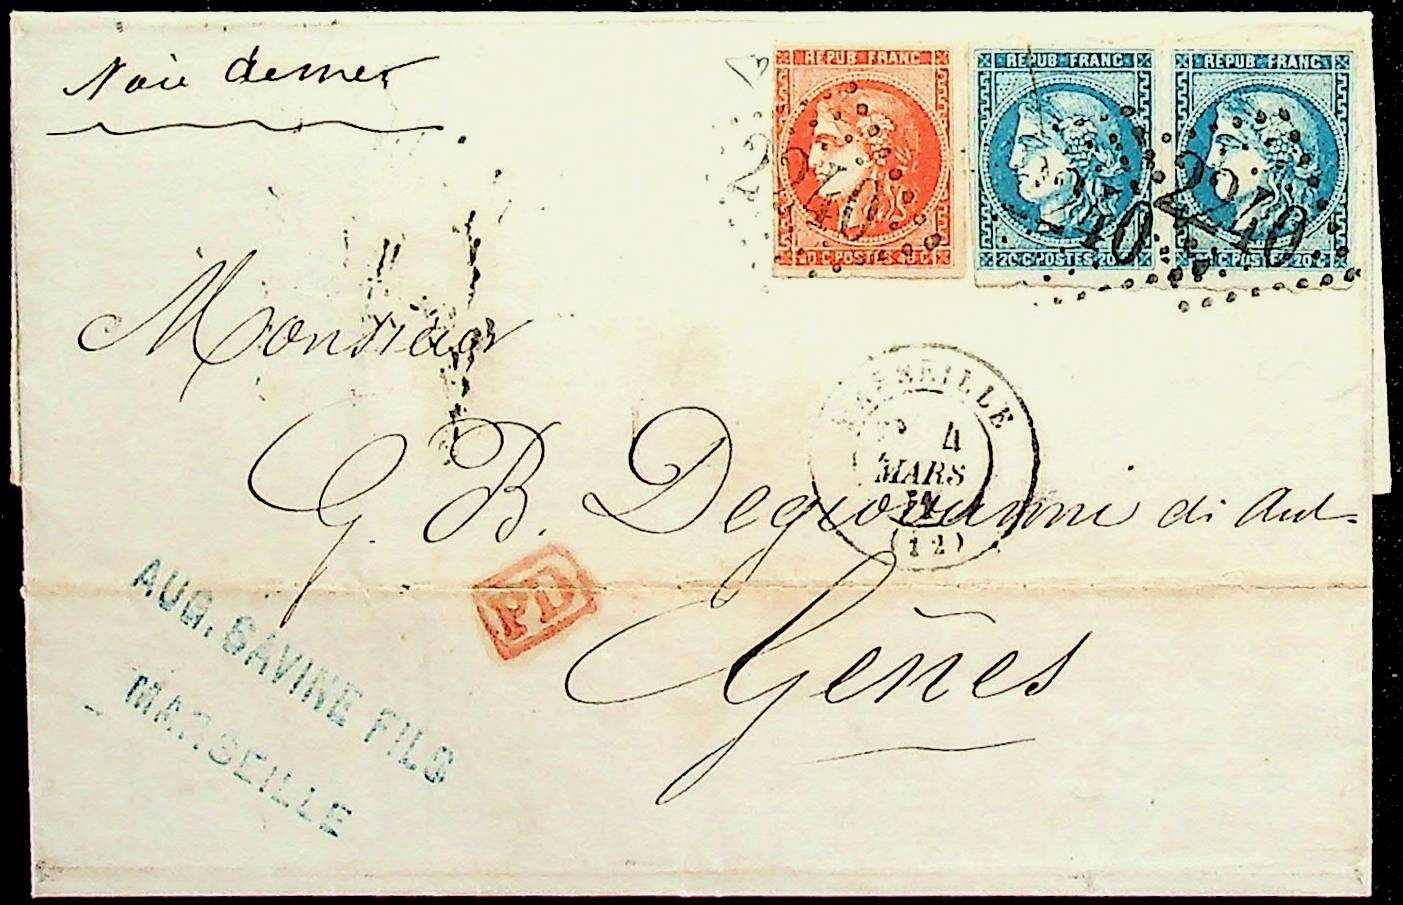 Voie de mer
REPUB FRANC
2240
C POSTES
REPUB FRANC
2240
20 C POSTES 20
REPUB FRANC
2240
C POSTES 20 C
Monsieur
G. B. Degiovanni di Ant.
Gênes
MARSEILLE
4
MARS
71
(12)
PD
AUG. SAVINE FILS
MARSEILLE